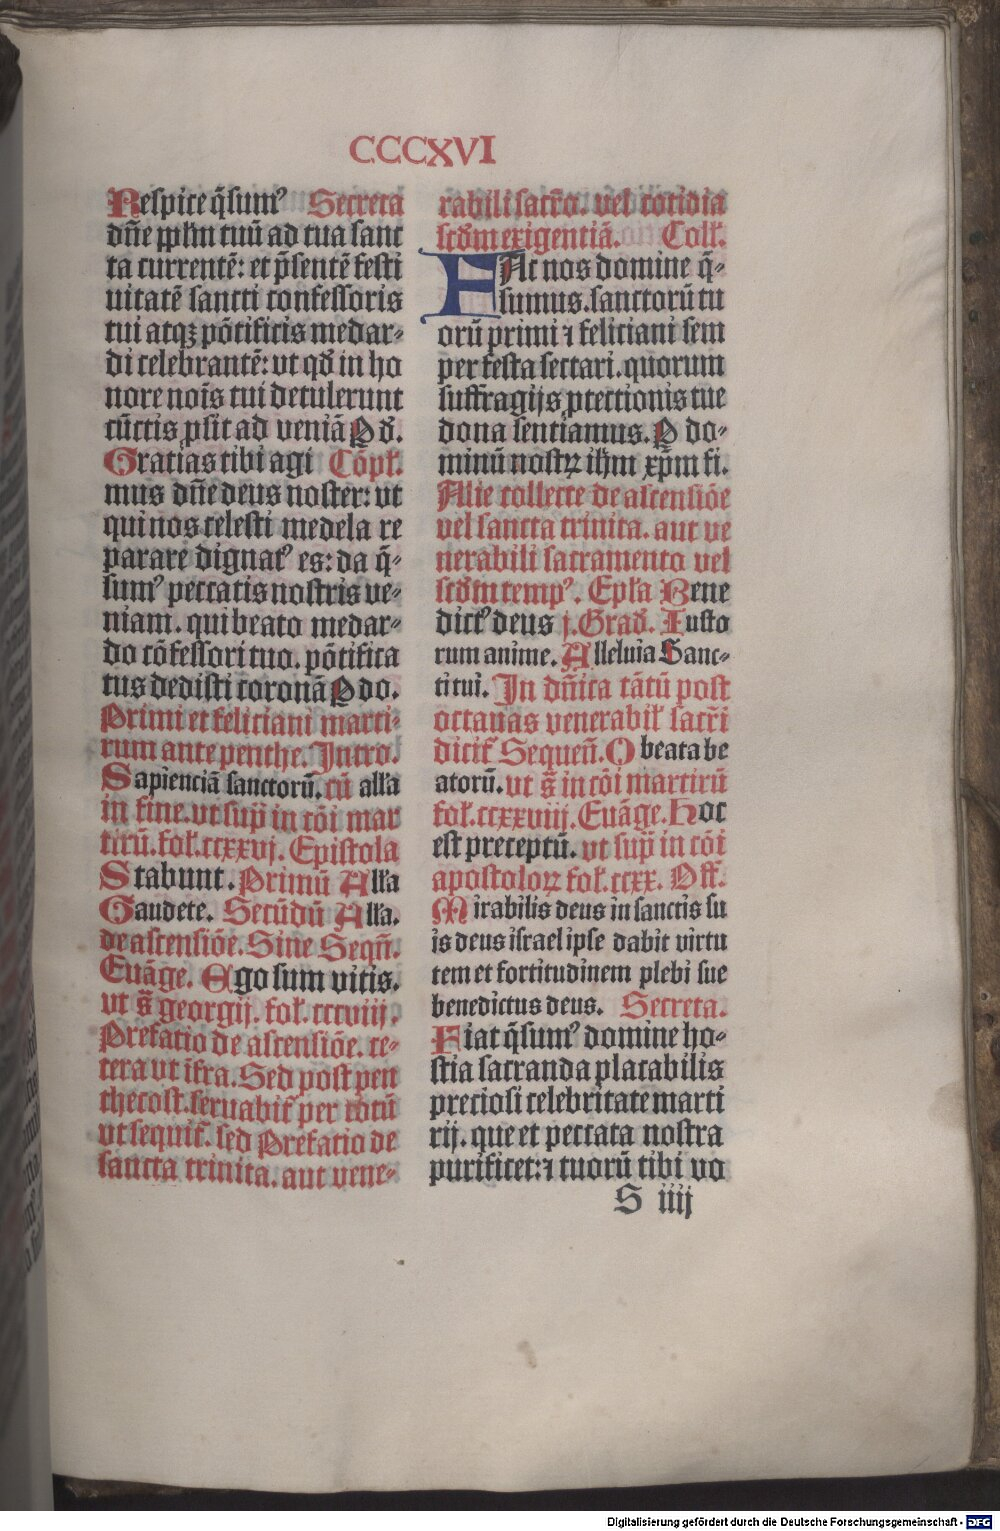 CCCXVI
Respice q̄sumꝰ Secreta
dñe pplm̄ tuū ad tua sanc
ta currentē: et p̄sentē festi
uitatē sancti confessoris
tui atqꝫ pōtificis medar-
di celebrantē: vt qđ in ho
nore nois̄ tui detulerunt
cūctis ꝓsit ad veniā P đ.
Gratias tibi agi Cōpł.
mus dñe deus noster: vt
qui nos celesti medela re
parare dignatꝰ es: da q̄-
sumꝰ peccatis nostris ve-
niam. qui beato medar-
do cōfessori tuo. pōtifica
tus dedisti coronā P do.
Primi et feliciani marti-
rum ante penthe. Intro.
Sapienciā sanctorū. cū alła
in fine. vt sup̄ in cōi mar
tirū. fol. ccxxvj. Epistola
Stabunt. Primū Alła
Gaudete. Secūdū Alła.
de ascensiōe. Sine Seqn̄.
Euāge. Ego sum vitis.
vt s̄ georgij. fol. cccviij.
Prefatio de ascensiōe. ce-
tera vt ifra. Sed post pen
thecost. seruabit᷑ per totū
vt sequit᷑. sed Prefatio de
sancta trinita. aut vene-
rabili sacr̄o. vel cotidia
scđm exigentiā. Coll.
FAc nos domine q̄-
sumus. sanctorū tu
orū primi ⁊ feliciani sem
per festa sectari. quorum
suffragijs ꝓtectionis tue
dona sentiamus. P do-
minū nostꝝ ihm̄ xp̄m fi.
Alie collecte de ascensiōe
vel sancta trinita. aut ve
nerabili sacramento vel
scđm tempꝰ. Epła Bene
dictꝰ deus j. Građ. Iusto
rum anime. Alleluia Sanc-
ti tui. In dñica tātū post
octauas venerabił sacr̄i
dicit᷑ Sequen̄. O beata be
atorū. vt s̄ in cōi martirū
fol. ccxxviij. Euāge. Hoc
est preceptū. vt sup̄ in cōi
apostoloꝝ fol. ccxx. Off.
Mirabilis deus in sanctis su
is deus israel ipse dabit virtu
tem et fortitudinem plebi sue
benedictus deus. Secreta.
Fiat q̄sumꝰ domine ho-
stia sacranda placabilis
preciosi celebritate marti
rij. que et peccata nostra
purificet: ⁊ tuorū tibi vo
S iiij
Digitalisierung gefördert durch die Deutsche Forschungsgemeinschaft - DFG